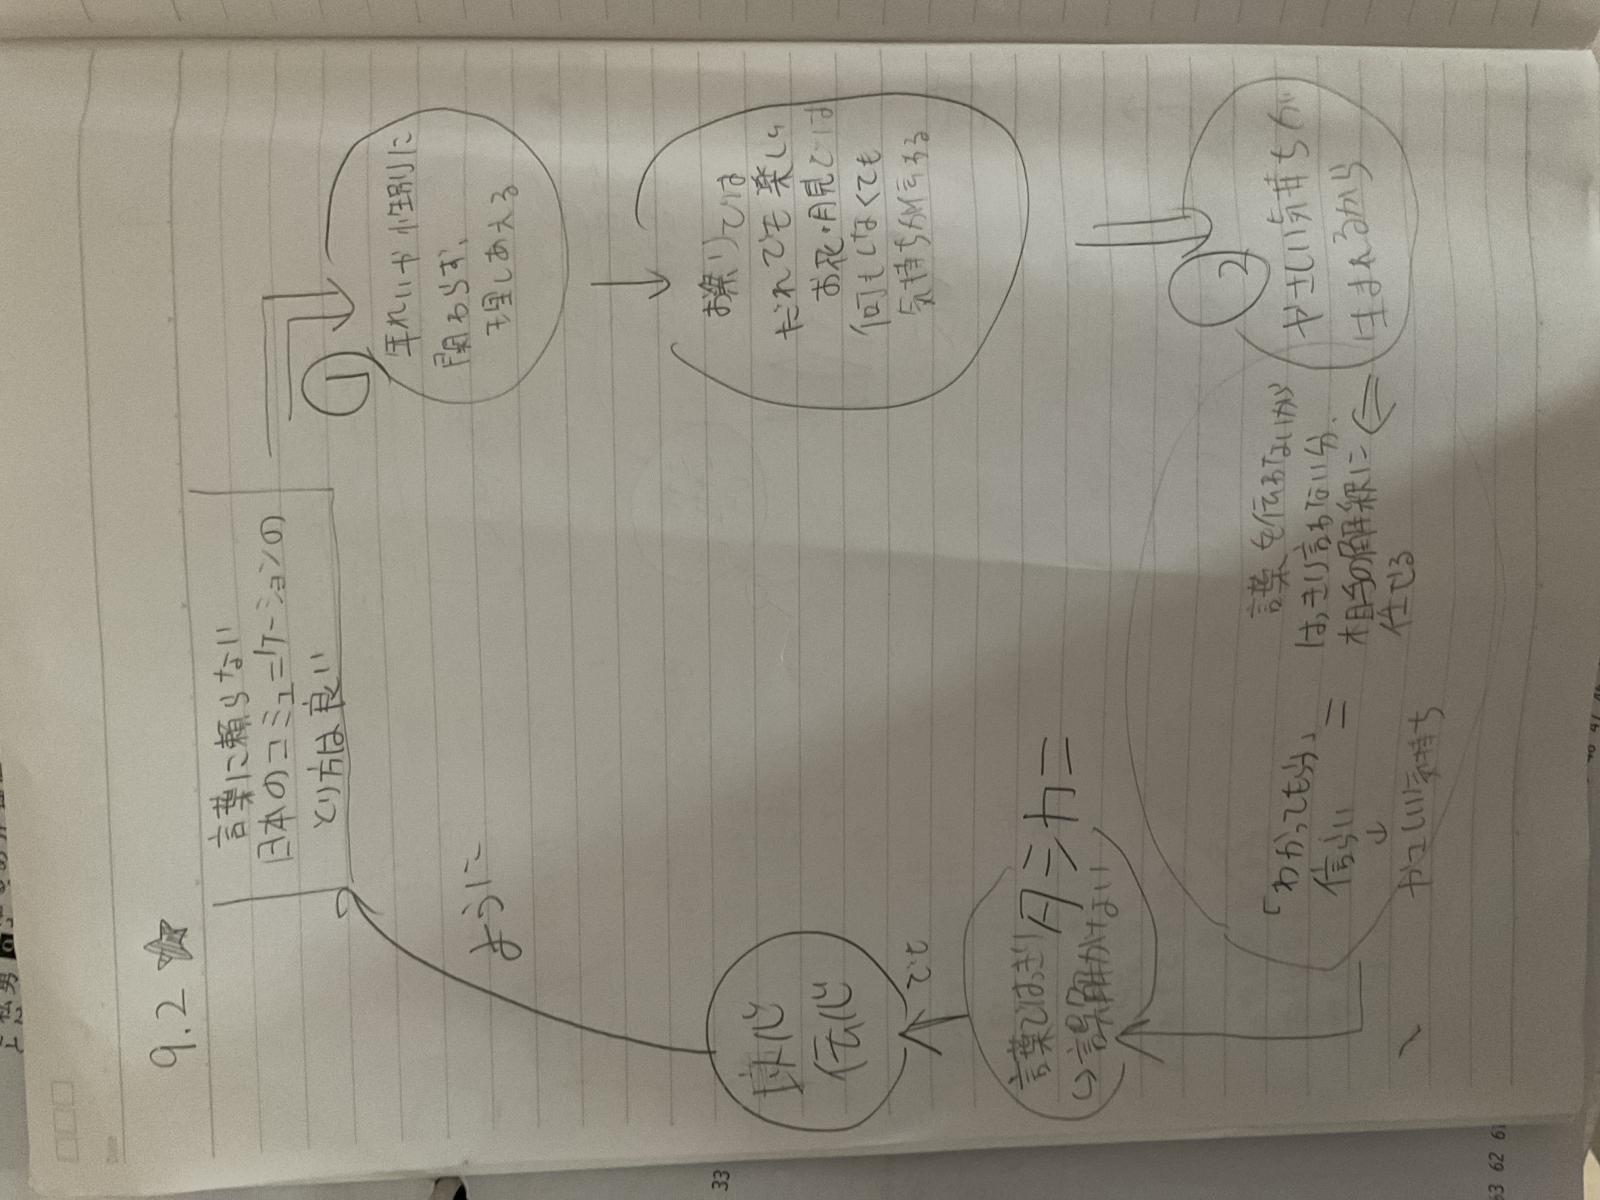 9.2 ☆
言葉に頼らない
日本のコミュニケーションの
とり方は良い
1
年れいや性別に
関わらず、
理しあえる
お祭りでは
だれでも楽しい
お花・月見では
何もしなくても
気持ちが伝わる
2
やさしい気持ちが
生まれるから
言葉を伝わないから
はっきり言わない分、
相手の解釈に
任せる
=
「わかってもらう」
信らい
↓
やさしい気持ち
言葉ではっきり
↳誤解がない
でも
以心
伝心
ように
33